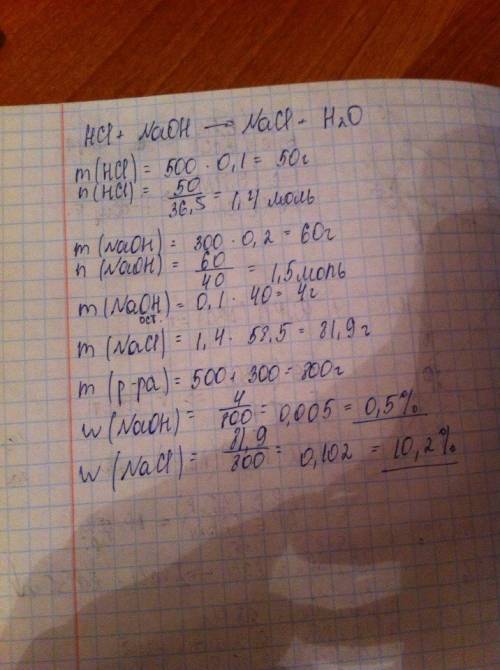 HCl + NaOH → NaCl + H₂O
m (HCl) = 500 · 0,1 = 50г
n (HCl) = 50/36,5 = 1,4 моль
m (NaOH) = 300 · 0,2 = 60г
n (NaOH) = 60/40 = 1,5 моль
m (NaOH ост.) = 0,1 · 40 = 4г
m (NaCl) = 1,4 · 58,5 = 81,9 г
m (р-ра) = 500 + 300 = 800г
w (NaOH) = 4/800 = 0,005 = 0,5%
w (NaCl) = 81,9/800 = 0,102 = 10,2%